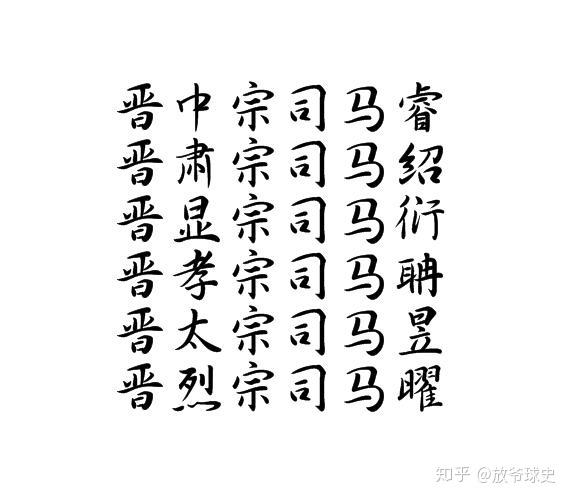 晋中宗司马睿
晋肃宗司马绍
晋显宗司马衍
晋孝宗司马聃
晋太宗司马昱
晋烈宗司马曜
知乎 @放爷球史